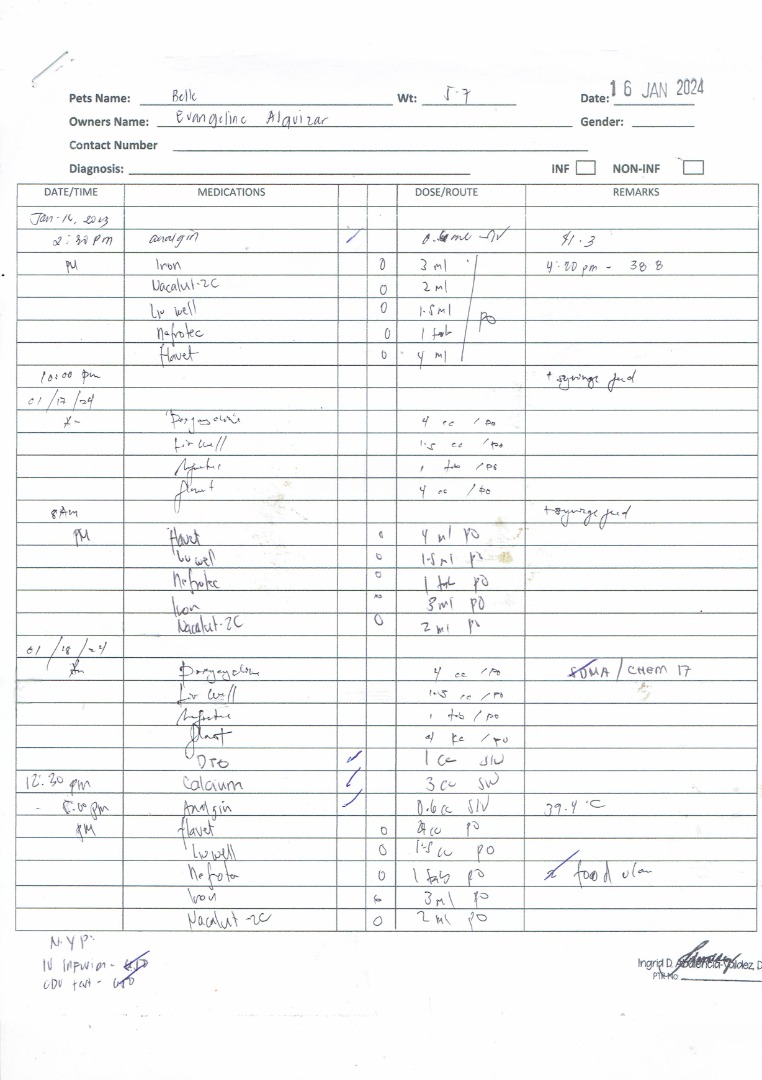 Pets Name: Belle Wt: 5.7 Date: 16 JAN 2024
Owners Name: Evangeline Alquizar Gender:
Contact Number
Diagnosis: INF NON-INF
DATE/TIME MEDICATIONS DOSE/ROUTE REMARKS
Jan-16, 2023
2:30 pm analgin SIV 41.3
PM Iron 0 3 ml 4:20 pm - 38 8
Nacalut-2C 0 2 ml
Liv well 0 1.5ml PO
Nefrotec 0 1 tab
flavet 0 4 ml
10:00 pm + syringe feed
01/17/24
Doxycycline 4 cc /po
Liv Well 1.5 cc /po
1 tab /po
4 cc /po
8Am + syringe feed
PM flavet 0 4 ml PO
Liv well 0 1.5ml po
Nefrotec 0 1 tab PO
Iron 3ml PO
Nacalut-2C 0 2 ml po
01/18/24
Am Doxycycline 4 cc /po SDMA / CHEM 17
Liv Well 1.5 cc /po
1 tab /po
4 cc /po
1 cc SIV
12:30 pm Calcium 3 cc SIV
Analgin 0.6cc SIV 39.4°C
PM flavet 0 4cc PO
Liv well 0 1.5 cc PO
0 1 tab PO food
Iron 3ml PO
Nacalut-2C 0 2 ml PO
N.Y.P:
IV Infusion -
CDV test -
Ingrid D.
PTR No